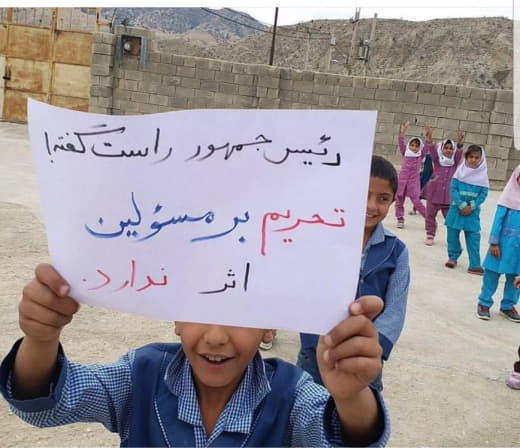 رئیس جمهور راست گفته!
تحریم بر مسؤلین
اثر ندارد.